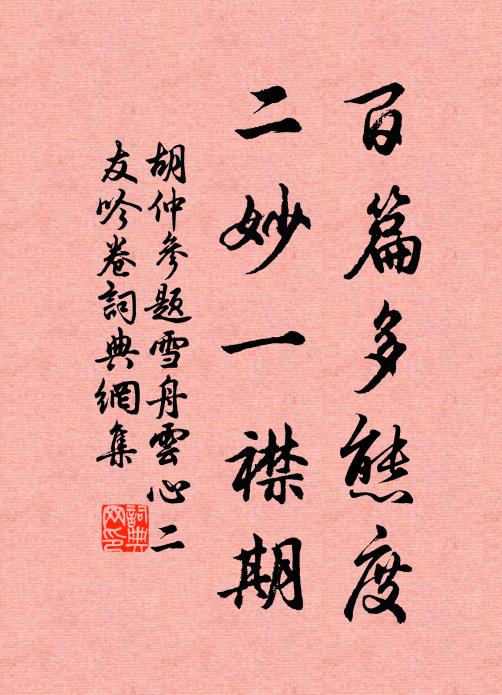 百篇多態度
二妙一襟期
胡仲參題雪舟雲心二
友吟卷詞典網集
詞典网印